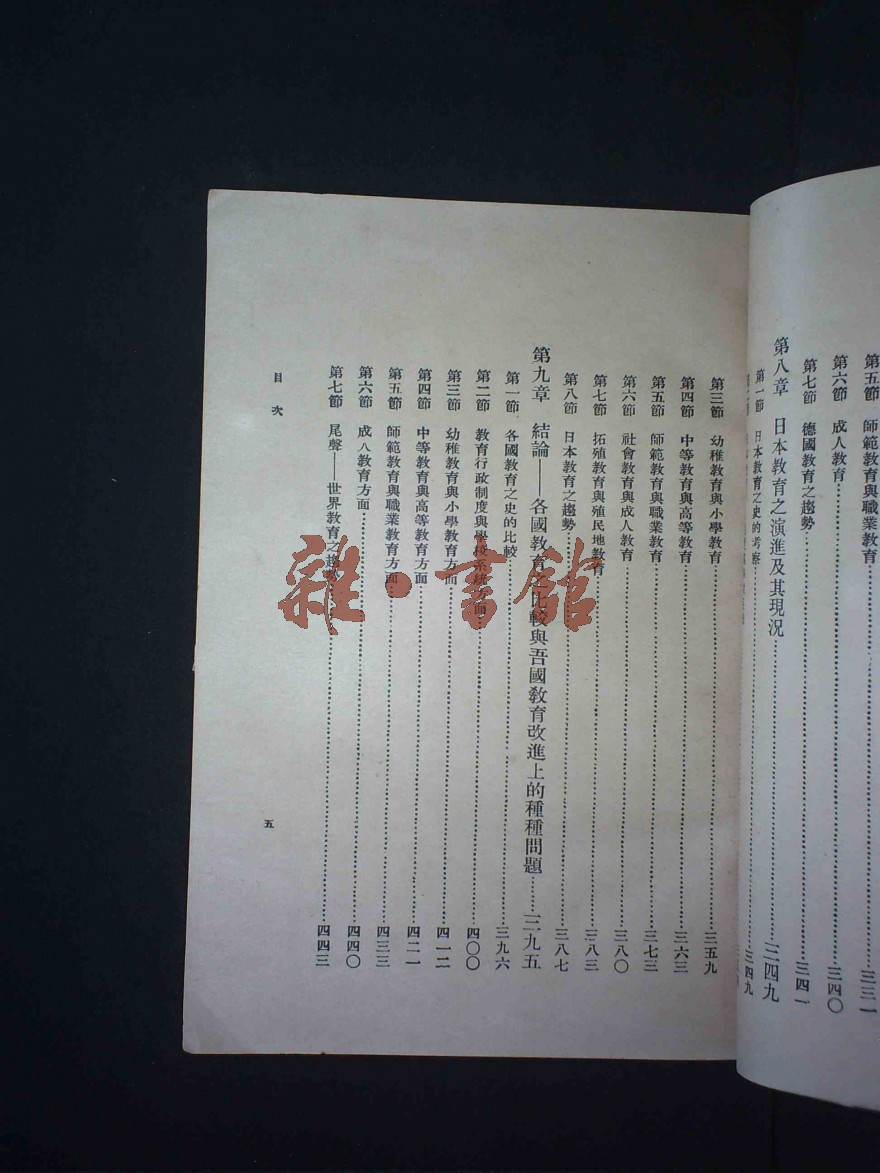 第五節　師範教育與職業教育……三三一
第六節　成人教育……三四〇
第七節　德國教育之趨勢……三四一
第八章　日本教育之演進及其現況……三四九
第一節　日本教育之史的考察……三四九
第三節　幼稚教育與小學教育……三五九
第四節　中等教育與高等教育……三六三
第五節　師範教育與職業教育……三七三
第六節　社會教育與成人教育……三八〇
第七節　拓殖教育與殖民地教育……三八三
第八節　日本教育之趨勢……三八七
第九章　結論——各國教育之比較與吾國教育改進上的種種問題……三九五
第一節　各國教育之史的比較……三九六
第二節　教育行政制度與學校系統方面……四〇〇
第三節　幼稚教育與小學教育方面……四一二
第四節　中等教育與高等教育方面……四二一
第五節　師範教育與職業教育方面……四三三
第六節　成人教育方面……四四〇
第七節　尾聲——世界教育之趨勢……四四三
目次
五
雜·書館